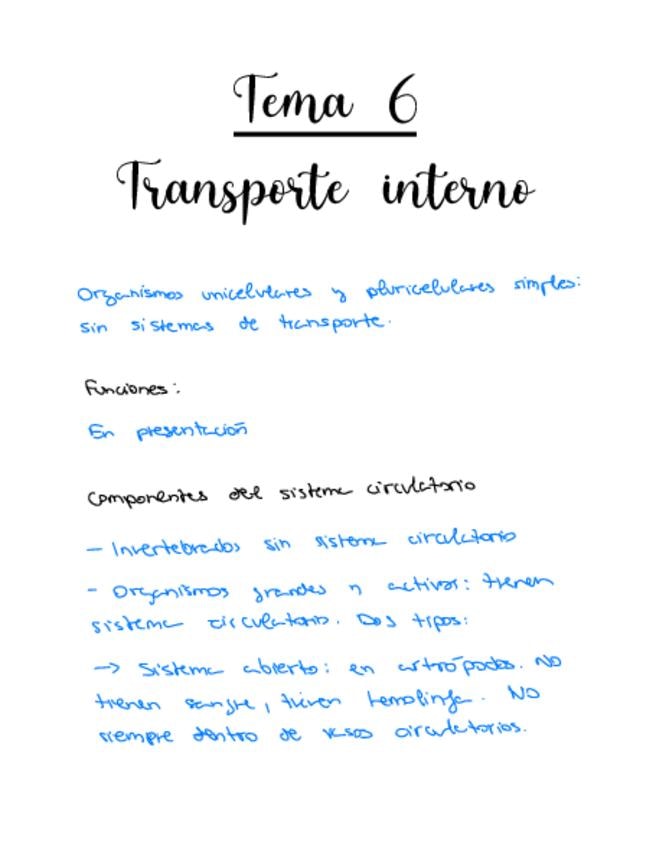 Tema 6
Transporte interno
Organismos unicelulares y pluricelulares simples:
sin sistemas de transporte.
Funciones:
En presentación
Componentes del sistema circulatorio
- Invertebrados sin sistema circulatorio
- Organismos grandes activos: tienen
sistema circulatorio. Dos tipos:
→ Sistema abierto: en artrópodos. No
tienen sangre, tienen hemolinfa. No
siempre dentro de vasos circulatorios.